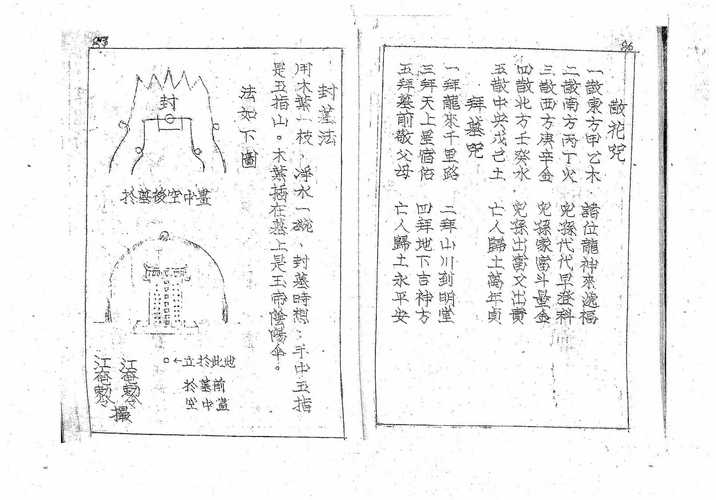 86
散花咒
一散東方甲乙木 諸位龍神來進福
二散南方丙丁火 兒孫代代早登科
三散西方庚辛金 兒孫家富斗量金
四散北方壬癸水 兒孫出富又出貴
五散中央戊己土 亡人歸土萬年貞
拜墓咒
一拜龍來千里路 二拜山川到明堂
三拜天上星宿佑 四拜地下吉神方
五拜墓前敬父母 亡人歸土永平安
87
封墓法
用木葉一枝、淨水一碗、封墓時想:手中五指
是五指山。木葉插在墓上是玉帝陰陽傘。
法如下圖
封
於墓後空中畫
□←立於此地
於墓前
空中畫